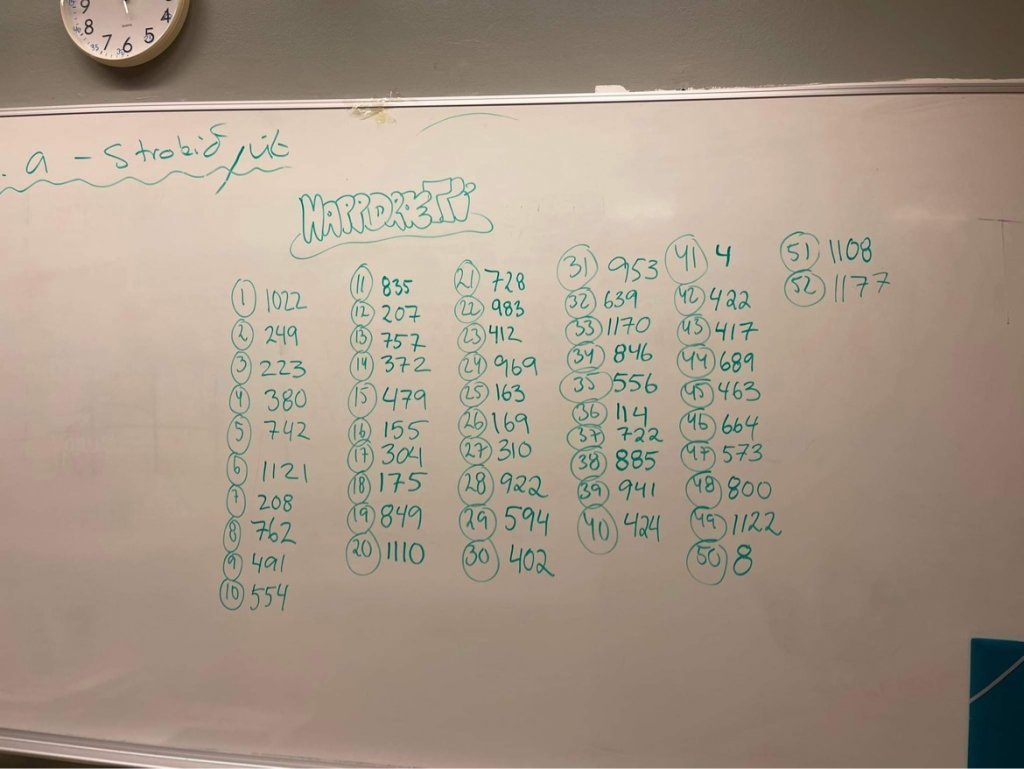 9 4
8 5
7 6
a - Strokið út
HAPPDRÆTTI
1 1022
2 249
3 223
4 380
5 742
6 1121
7 208
8 762
9 491
10 554
11 835
12 207
13 757
14 372
15 479
16 155
17 304
18 175
19 849
20 1110
21 728
22 983
23 412
24 969
25 163
26 169
27 310
28 922
29 594
30 402
31 953
32 639
33 1170
34 846
35 556
36 114
37 722
38 885
39 941
40 424
41 4
42 422
43 417
44 689
45 463
46 664
47 573
48 800
49 1122
50 8
51 1108
52 1177